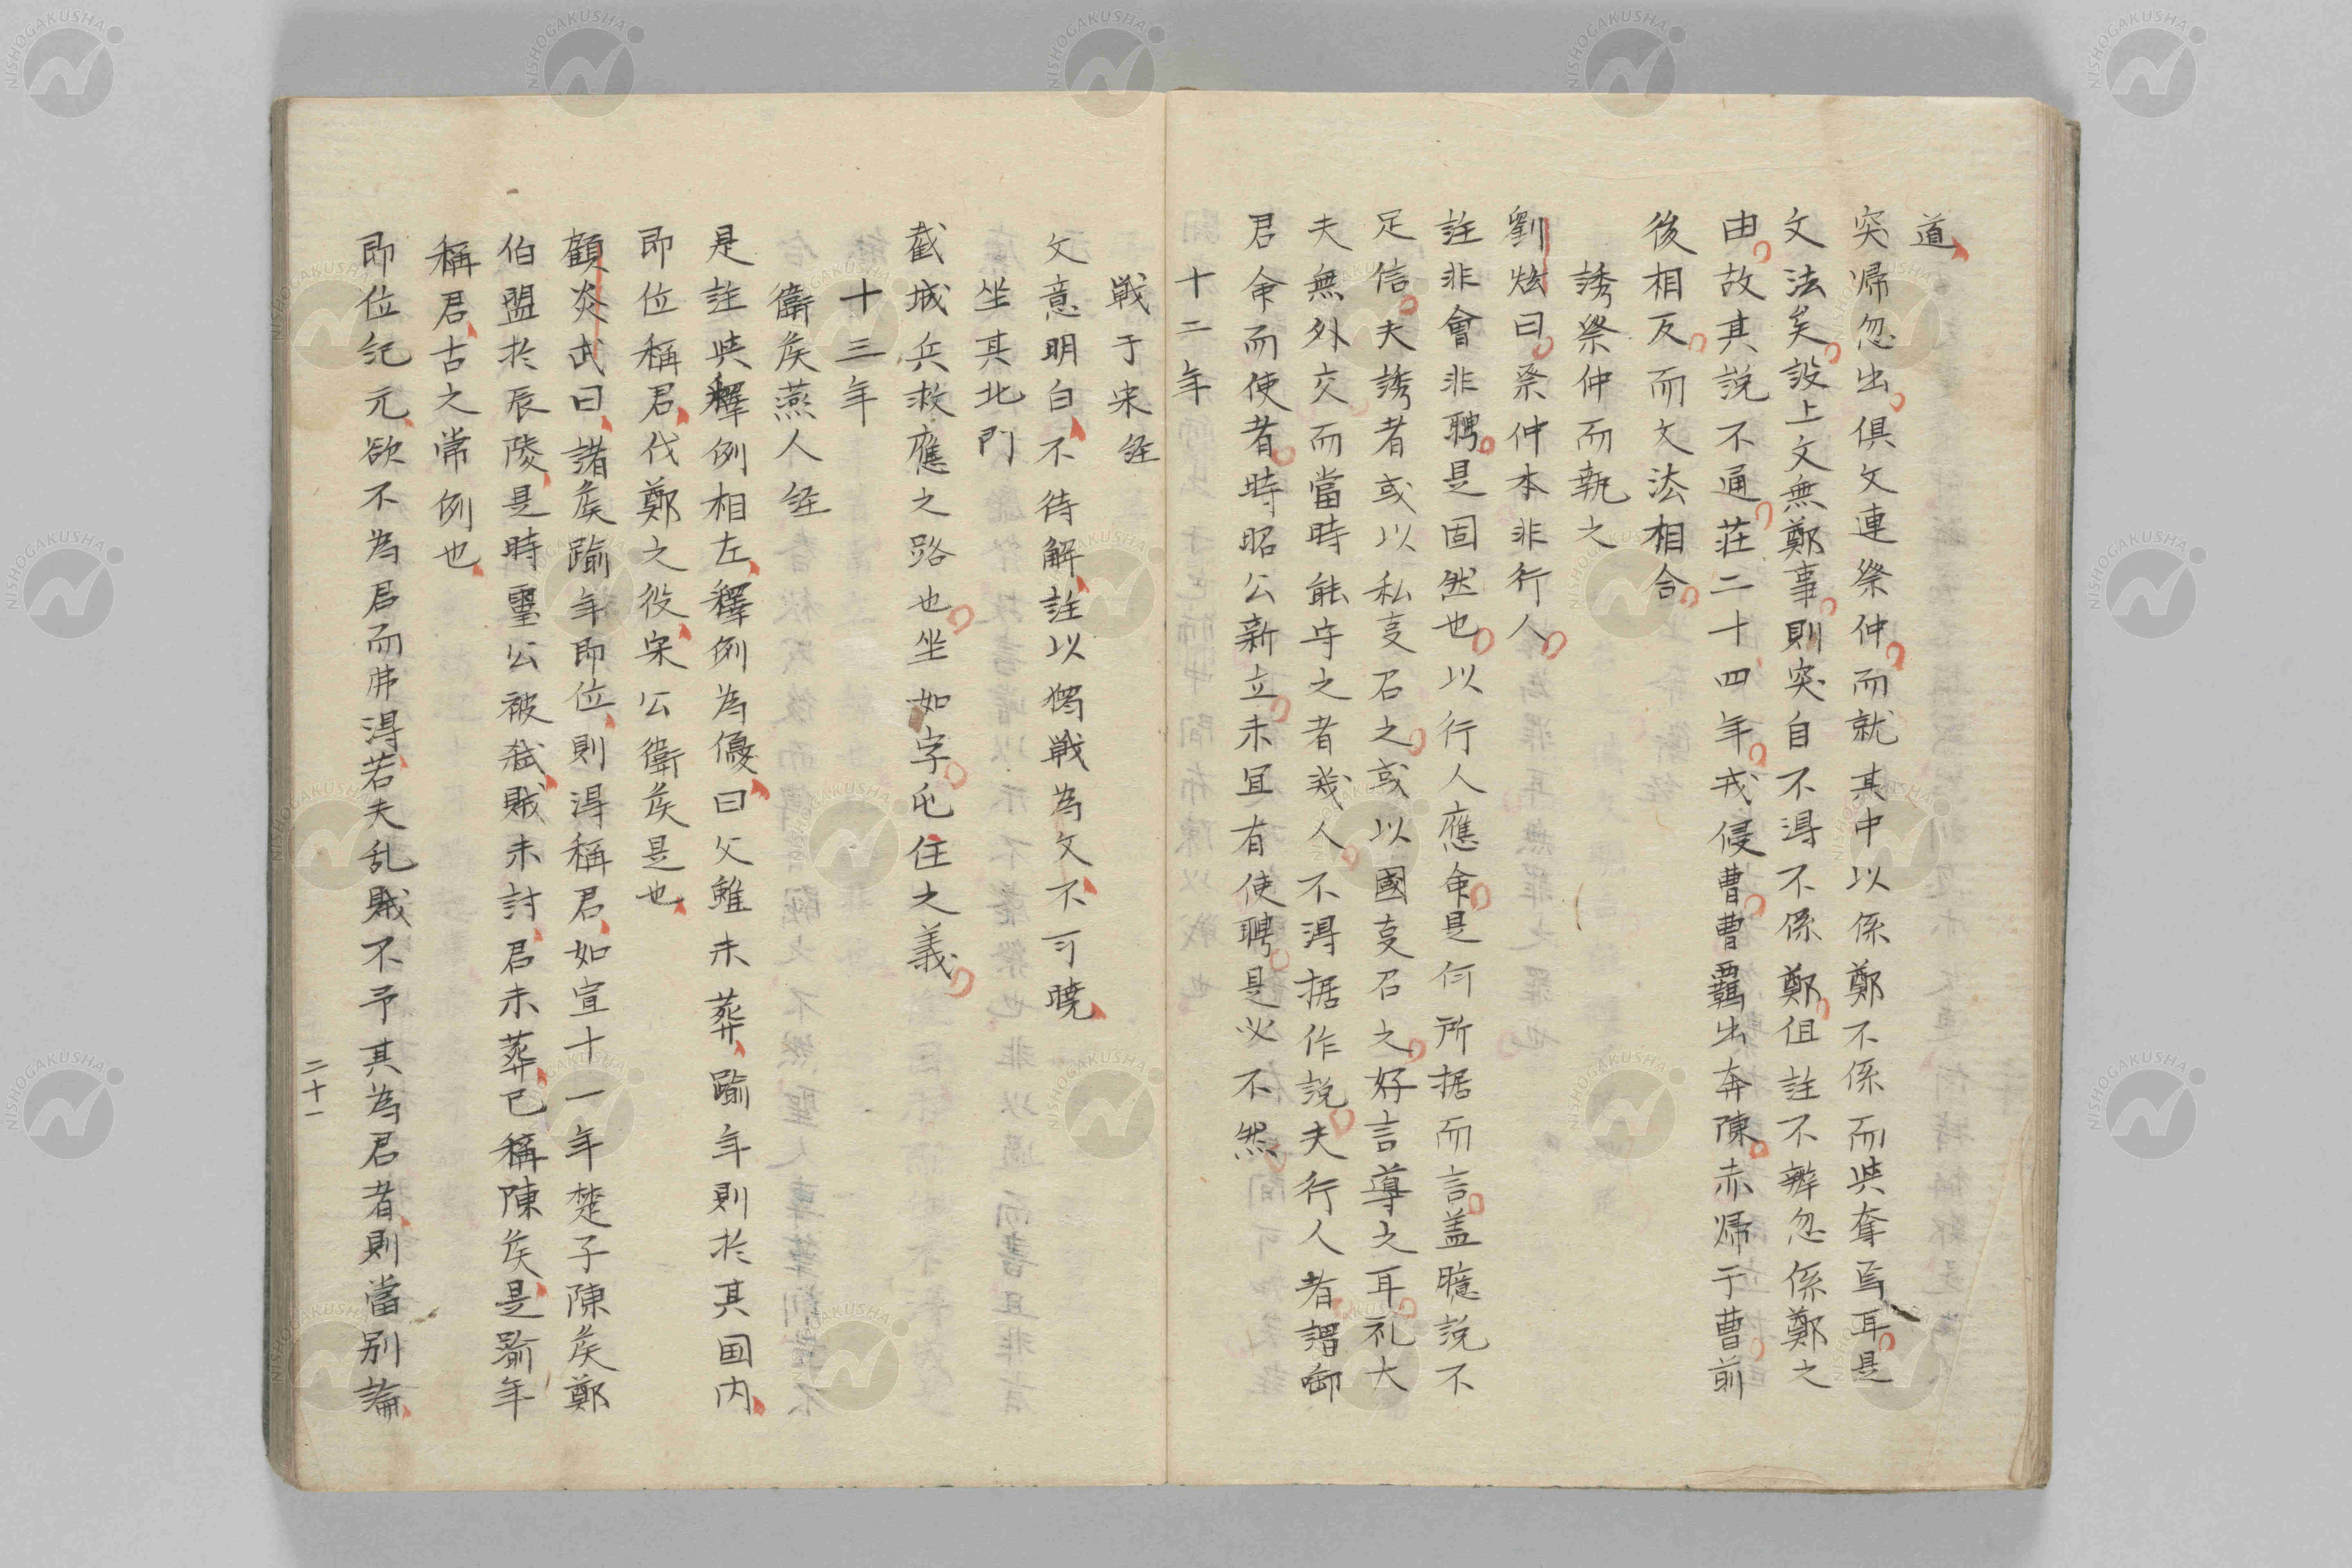 道
突帰忽出俱文連祭仲而就其中以係鄭不係而與奪焉耳是
文法矣設上文無鄭事則突自不得不係鄭但註不辨忽係鄭之
由故其説不通莊二十四年戎侵曹曹羈出奔陳赤帰于曹前
後相反而文法相合
誘祭仲而執之
劉炫曰祭仲本非行人
註非會非聘是固然也以行人應命是何所据而言盖臆説不
足信夫誘者或以私夌召之或以國夌召之好言導之耳礼大
夫無外交而當時能守之者幾人不得据作説夫行人者謂御
君命而使者時昭公新立未冝有使聘是必不然
十二年
戦于宋経
文意明白不待解註以獨戦為文不可曉
坐其北門
截城兵救應之路也坐如字屯住之義
十三年
衛矦燕人経
是註與釋例相左釋例為優曰父雖未葬踰年則於其国内
即位稱君代鄭之役宋公衛矦是也
顧炎武曰諸矦踰年即位則得稱君如宣十一年楚子陳矦鄭
伯盟於辰陵是時靈公被弑賊未討君未葬已稱陳矦是踰年
稱君古之常例也
即位紀元欲不為君而弗得若夫乱賊不予其為君者則當别論
二十一
NISHOGAKUSHA